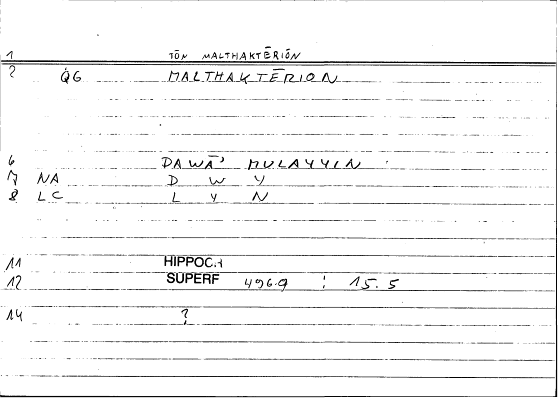 1 TŌN MALTHAKTĒRIŌN
2 QG MALTHAKTĒRION
6 DAWĀʾ MULAYYIN
7 NA D W Y
8 LC L Y N
11 HIPPOC.
12 SUPERF 496.9 : 15.5
14 ?